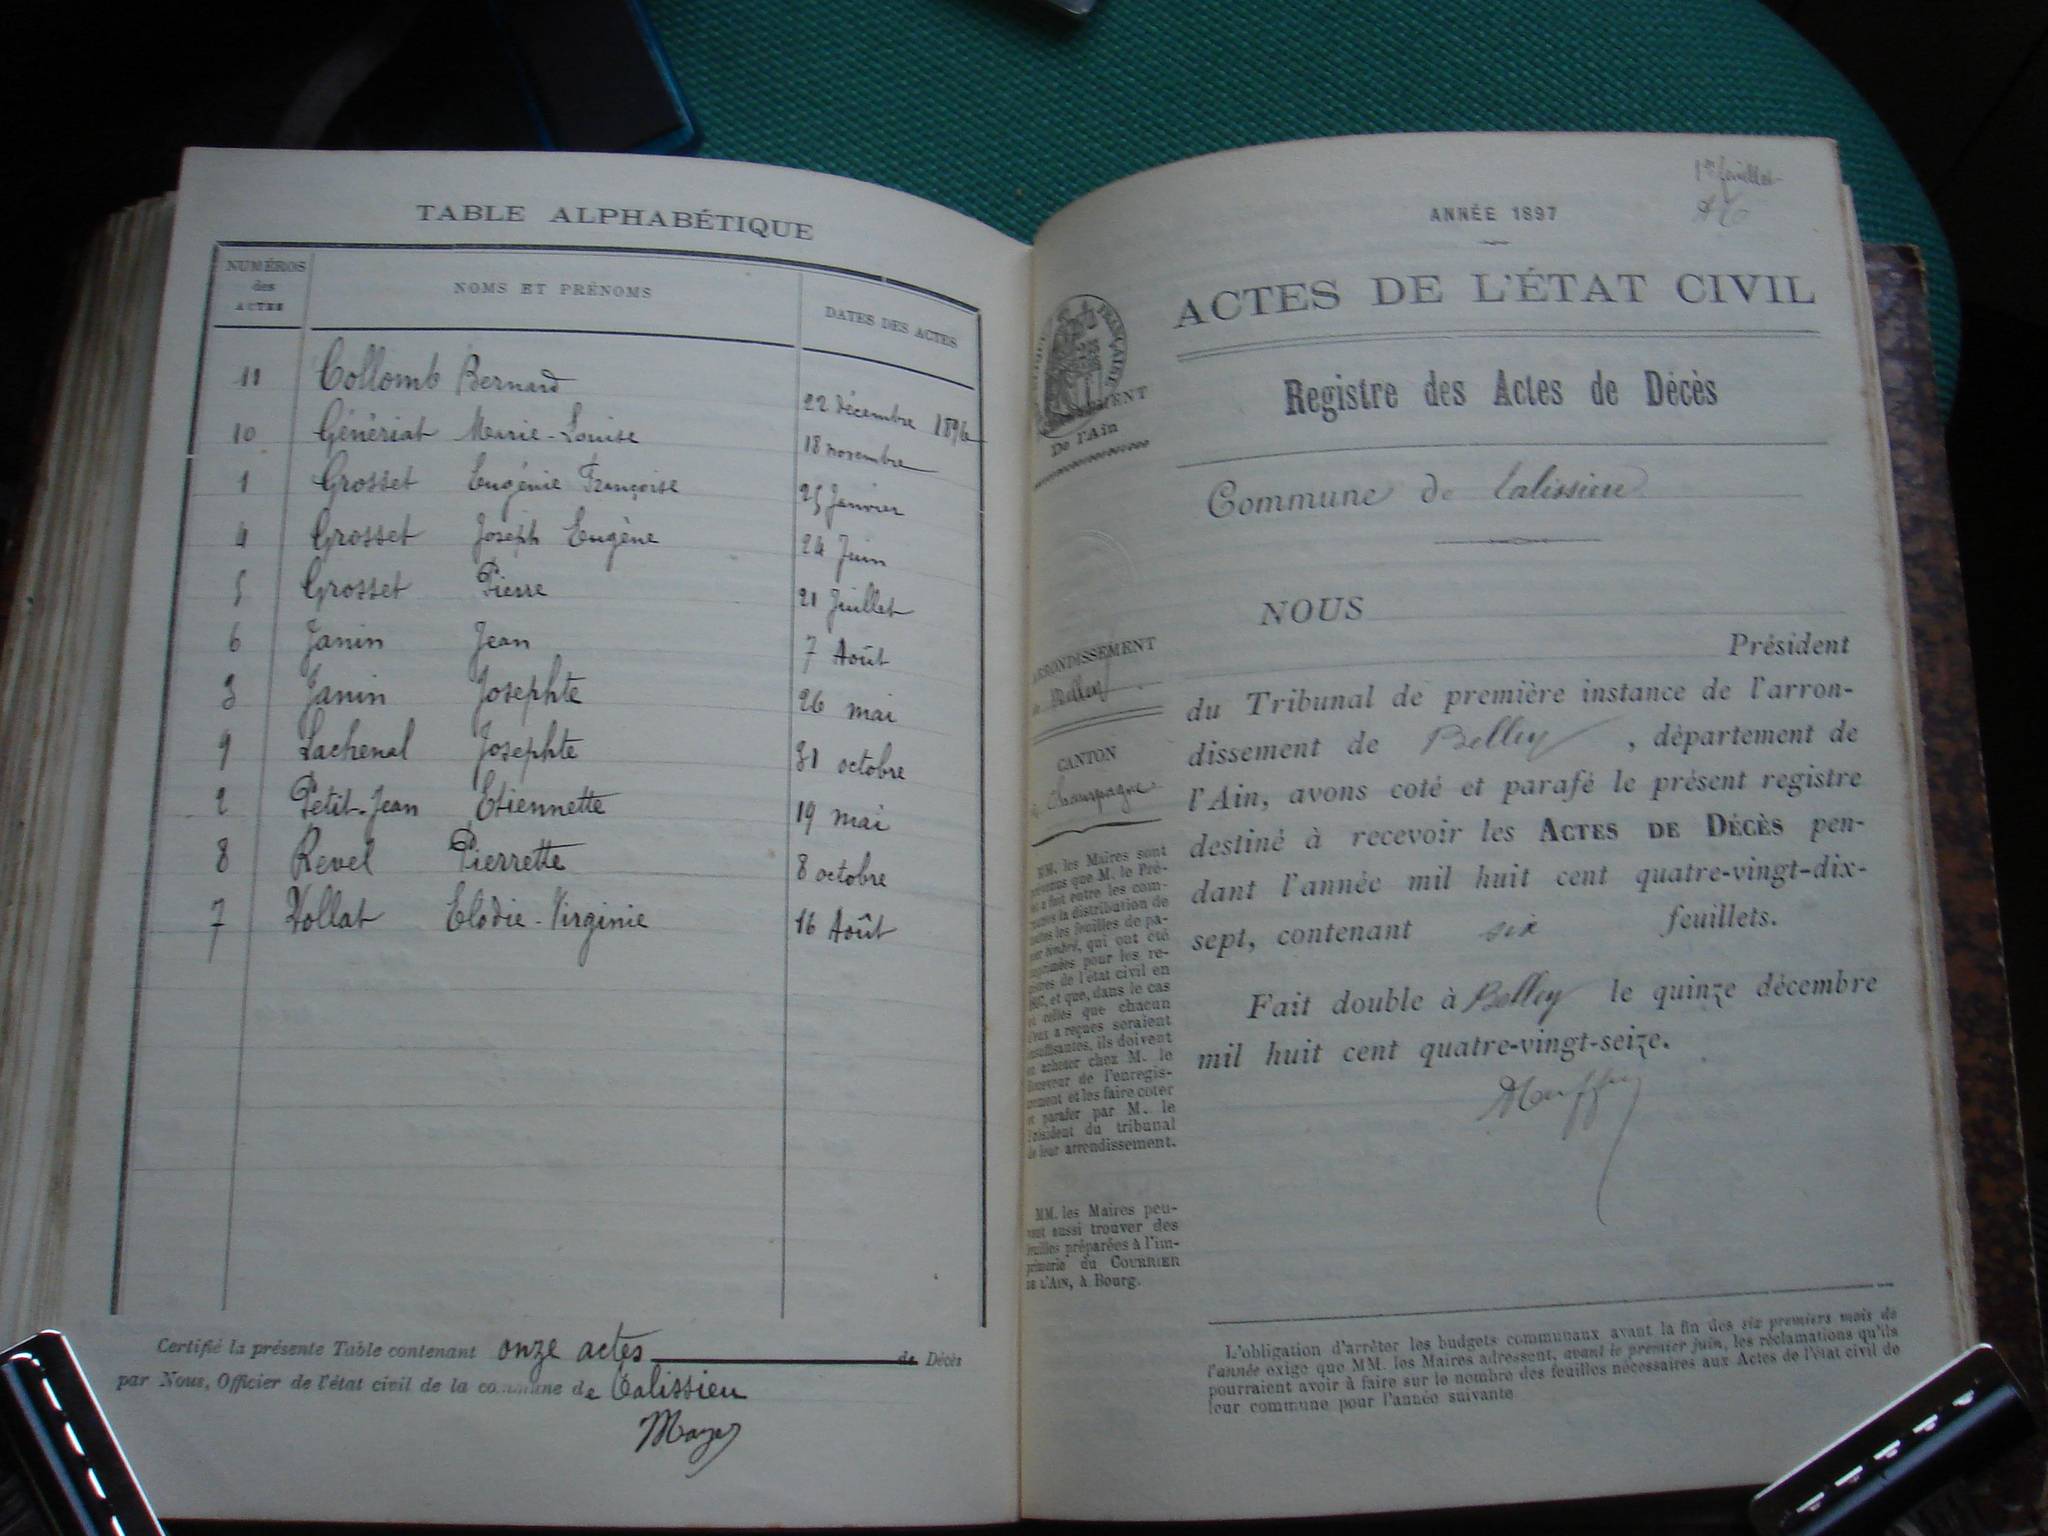 TABLE ALPHABÉTIQUE
NUMÉROS des ACTES
NOMS ET PRÉNOMS
DATES DES ACTES
11 Collomb Bernard 22 décembre 1896
10 Génériat Marie-Louise 18 novembre
1 Grosset Eugénie Françoise 25 Janvier
4 Grosset Joseph Eugène 24 Juin
5 Grosset Pierre 21 Juillet
6 Janin Jean 7 Août
3 Janin Josephte 26 mai
9 Lachenal Josephte 31 octobre
2 Petit-Jean Etiennette 19 mai
8 Revel Pierrette 8 octobre
7 Vollat Elodie-Virginie 16 Août
Certifié la présente Table contenant onze actes de Décès
par Nous, Officier de l'état civil de la commune de Talissieu
1er feuillet
ANNÉE 1897
ACTES DE L'ÉTAT CIVIL
Registre des Actes de Décès
Commune de Talissieu
FRANÇAISE
De l'Ain
NOUS
Président
du Tribunal de première instance de l'arron-
dissement de Belley, département de
l'Ain, avons coté et parafé le présent registre
destiné à recevoir les ACTES DE DÉCÈS pen-
dant l'année mil huit cent quatre-vingt-dix-
sept, contenant six feuillets.
Fait double à Belley le quinze décembre
mil huit cent quatre-vingt-seize.
ARRONDISSEMENT
Belley
CANTON
Champagne
MM. les Maires sont
prévenus que M. le Pré-
fet a fait entre les com-
munes la distribution de
toutes les feuilles de pa-
pier timbré, qui ont été
imprimées pour les re-
gistres de l'état civil en
1897, et que, dans le cas
où celles que chacun
d'eux a reçues seraient
insuffisantes, ils doivent
en acheter chez M. le
Receveur de l'enregis-
trement et les faire coter
et parafer par M. le
Président du tribunal
de leur arrondissement.
MM. les Maires peu-
vent aussi trouver des
feuilles préparées à l'im-
primerie du COURRIER
DE L'AIN, à Bourg.
L'obligation d'arrêter les budgets communaux avant la fin des six premiers mois de
l'année exige que MM. les Maires adressent, avant le premier juin, les réclamations qu'ils
pourraient avoir à faire sur le nombre des feuilles nécessaires aux Actes de l'état civil de
leur commune pour l'année suivante